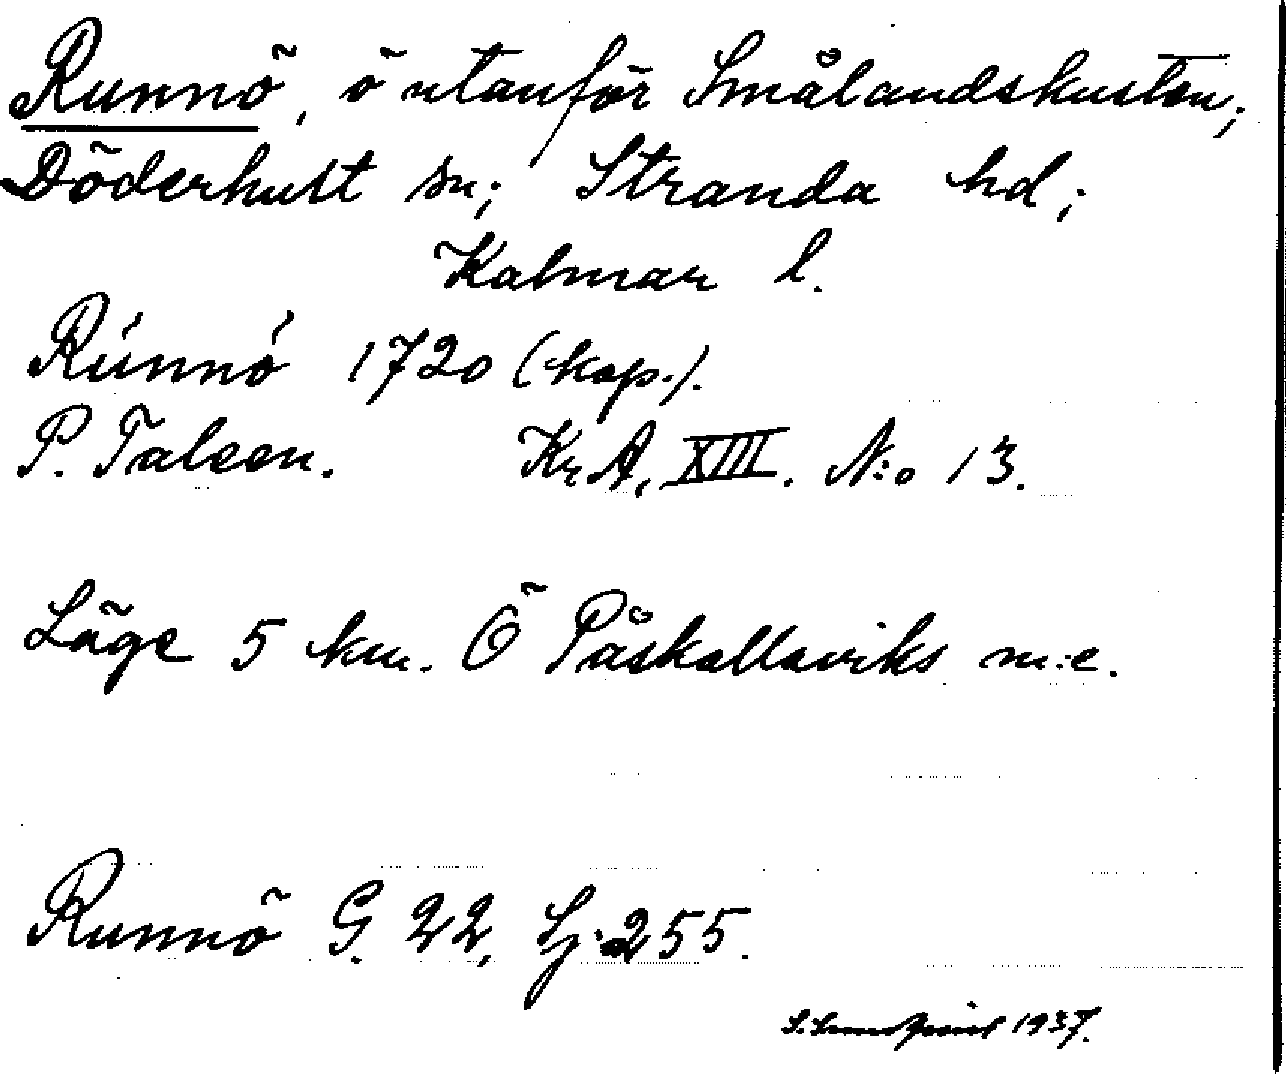 Runnö, ö utanför Smålandskusten;
Döderhult sn; Stranda hd;
Kalmar l.
Rúnnó 1720 (kop.).
P. Taleen. KrA, XIII. N:o 13.
Läge 5 km. Ö Påskallaviks m:e.
Runnö G. 22, Lj. 255.
1937.